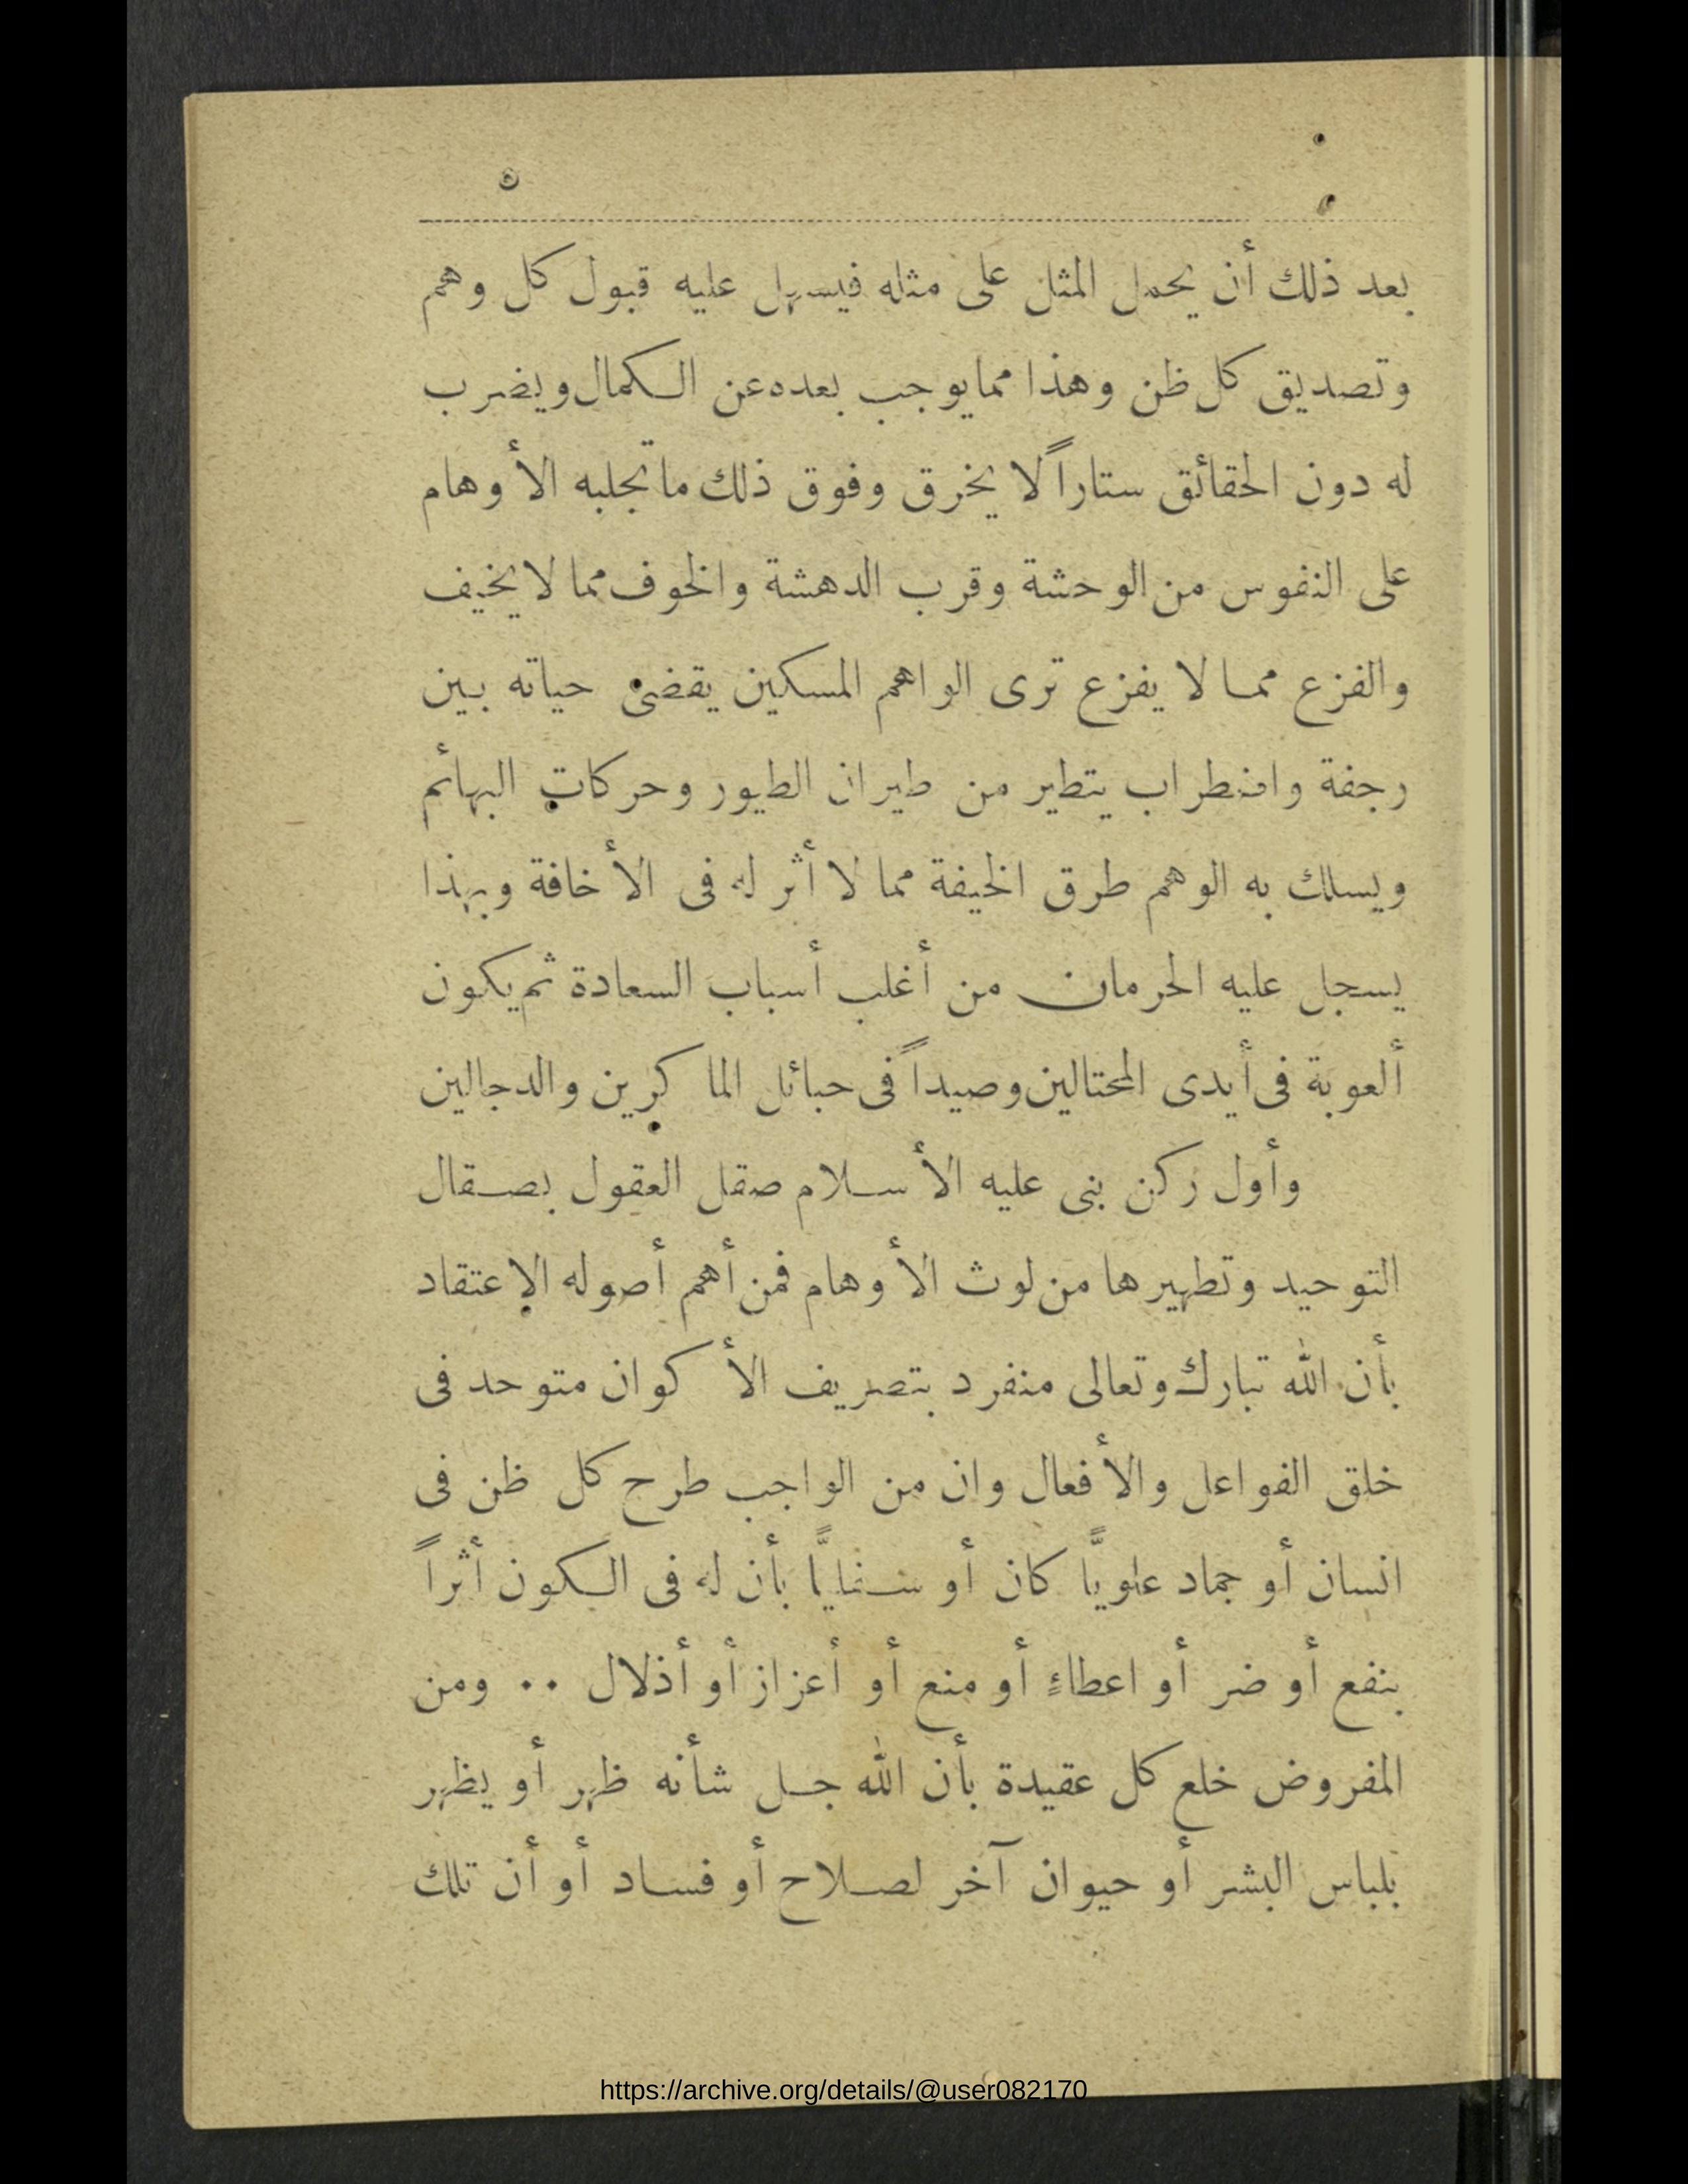 ٥
بعد ذلك أن يحمل المثل على مثله فيسهل عليه قبول كل وهم
وتصديق كل ظن وهذا مما يوجب بعده عن الكمال ويضرب
له دون الحقائق ستاراً لا يخرق وفوق ذلك ما تجلبه الأوهام
على النفوس من الوحشة وقرب الدهشة والخوف مما لا يخيف
والفزع مما لا يفزع ترى الواهم المسكين يقضى حياته بين
رجفة واضطراب يتطير من طيران الطيور وحركات البهائم
ويسلك به الوهم طرق الخيفة مما لا أثر له فى الأخافة وبهذا
يسجل عليه الحرمان من أغلب أسباب السعادة ثم يكون
ألعوبة فى أيدى المحتالين وصيداً فى حبائل الماكرين والدجالين
وأول ركن بنى عليه الأسلام صقل العقول بصقال
التوحيد وتطهيرها من لوث الأوهام فمن أهم أصوله الإعتقاد
بأن الله تبارك وتعالى منفرد بتصريف الأكوان متوحد فى
خلق الفواعل والأفعال وان من الواجب طرح كل ظن فى
انسان أو جماد علويًّا كان أو سفليًّا بأن له فى الكون أثراً
بنفع أو ضر أو اعطاءٍ أو منع أو أعزاز أو أذلال ٠٠ ومن
المفروض خلع كل عقيدة بأن الله جل شأنه ظهر أو يظهر
بلباس البشر أو حيوان آخر لصلاح أو فساد أو أن تلك
https://archive.org/details/@user082170